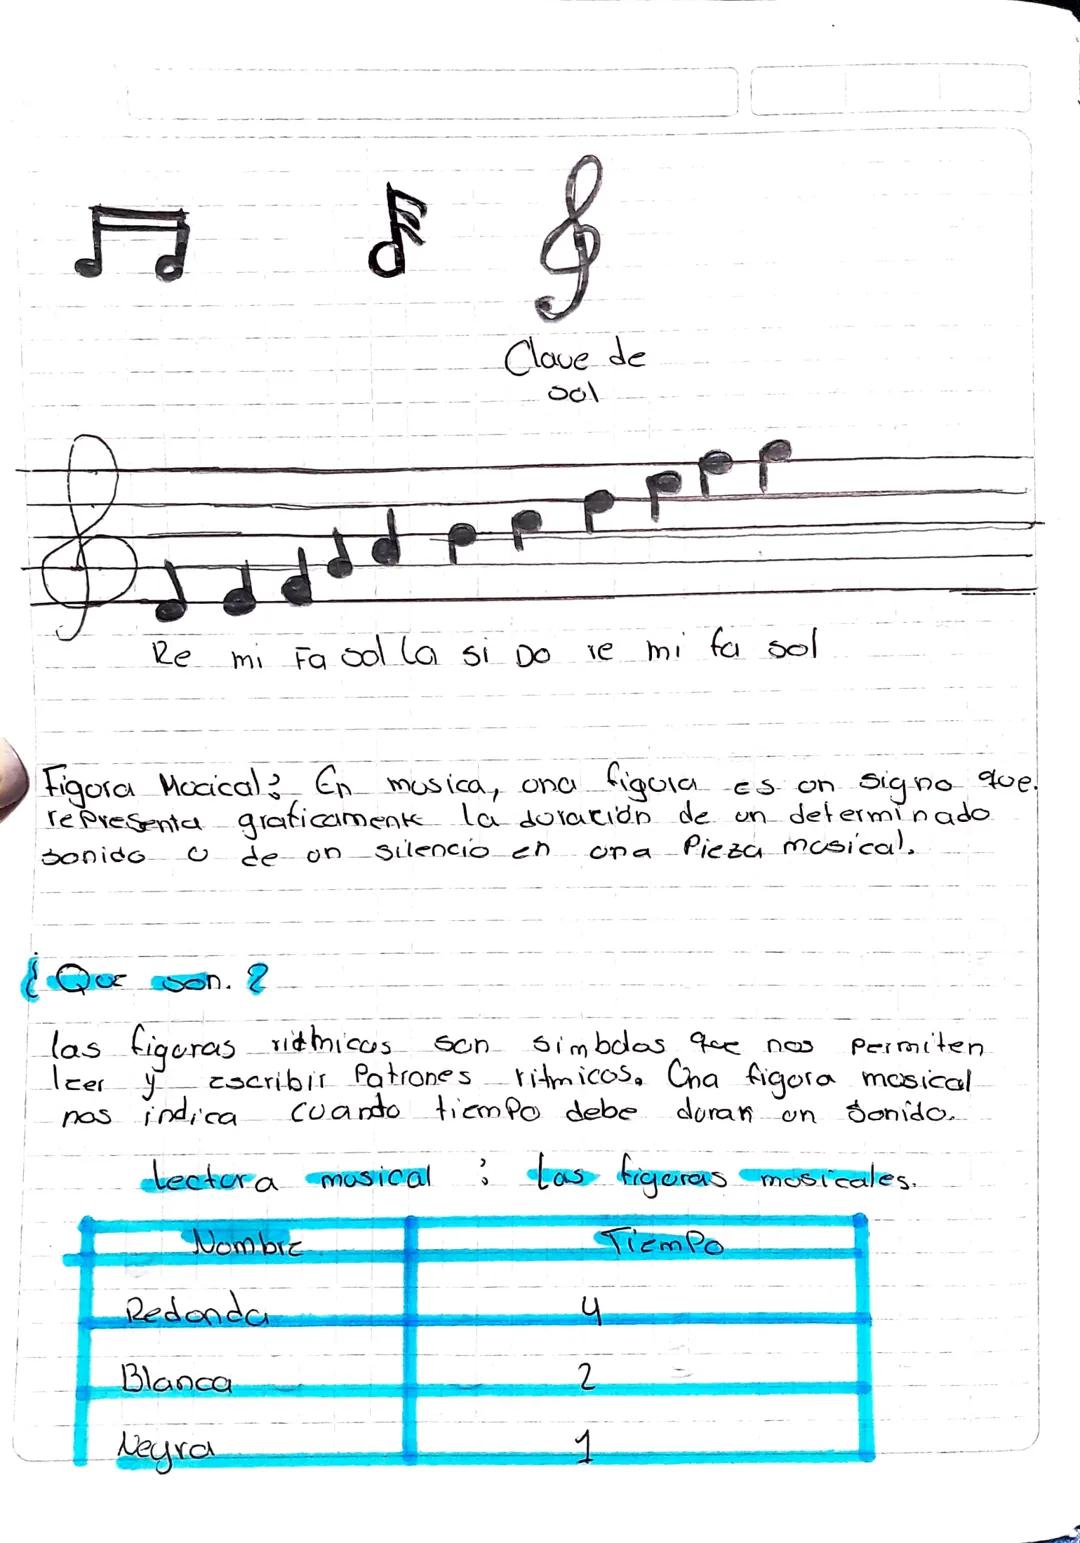 Clave de
sol
Re mi Fa sol la si Do re mi fa sol
Figora Mocical: En mosica, ona figura es on signo que.
representa graficamente la doración de un determinado
sonido o de on silencio en ona Pieza mosical.
¿Que son.?
las figuras ritmicas son simbolos que nos permiten
leer y escribir Patrones ritmicos. Una figora mosical
nos indica cuando tiempo debe duran un sonido.
Lectora mosical : Las figuras mosicales.
Nombre Tiempo
Redonda 4
Blanca 2
Negra 1